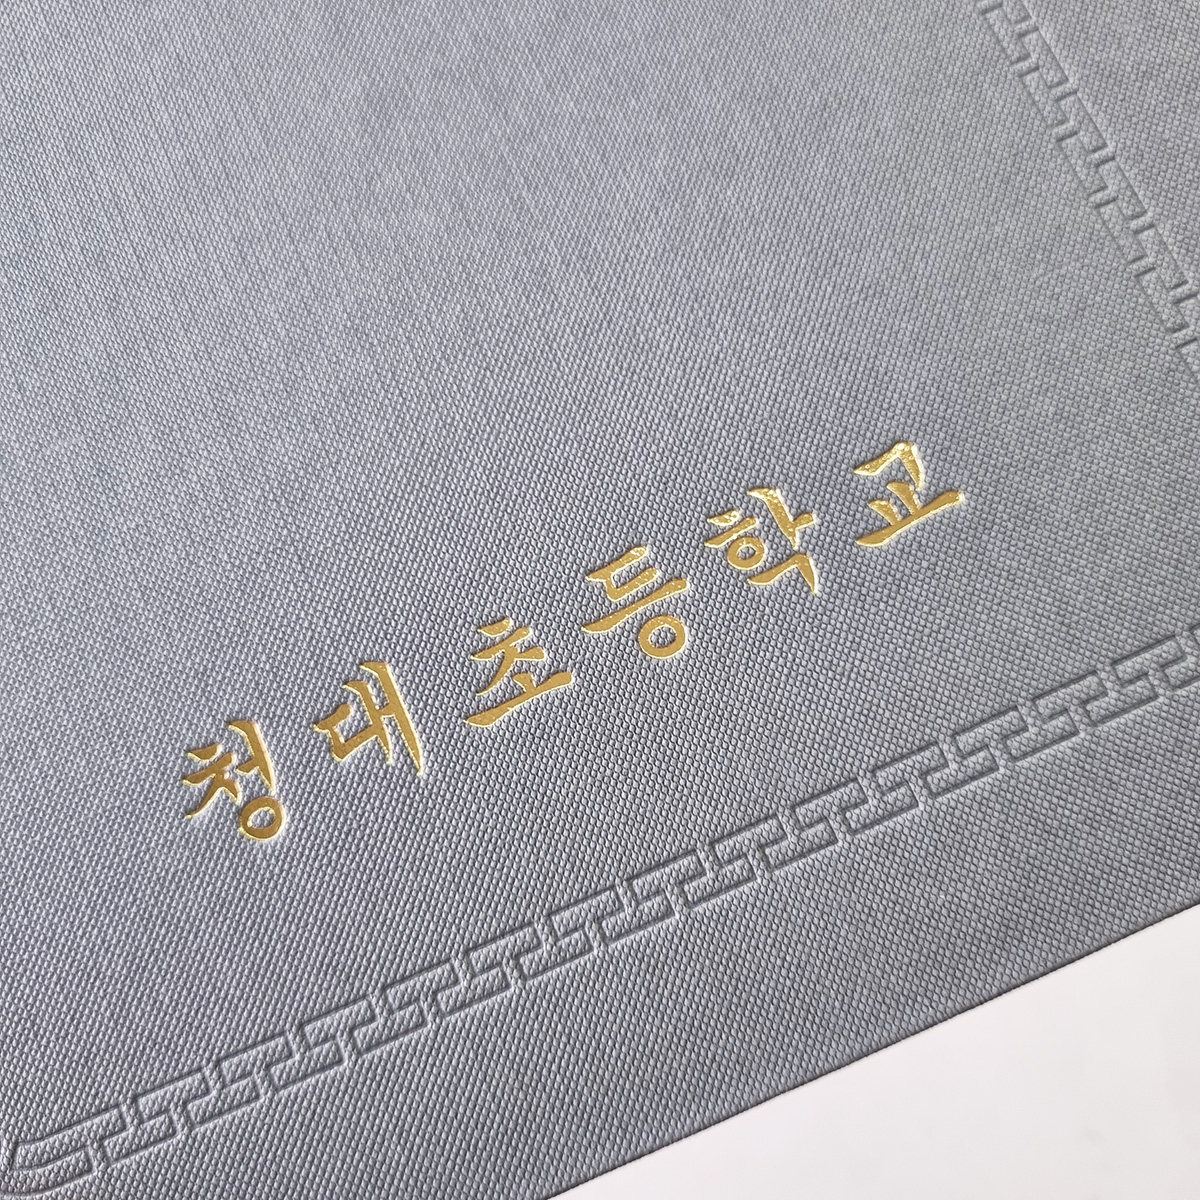 청대초등학교